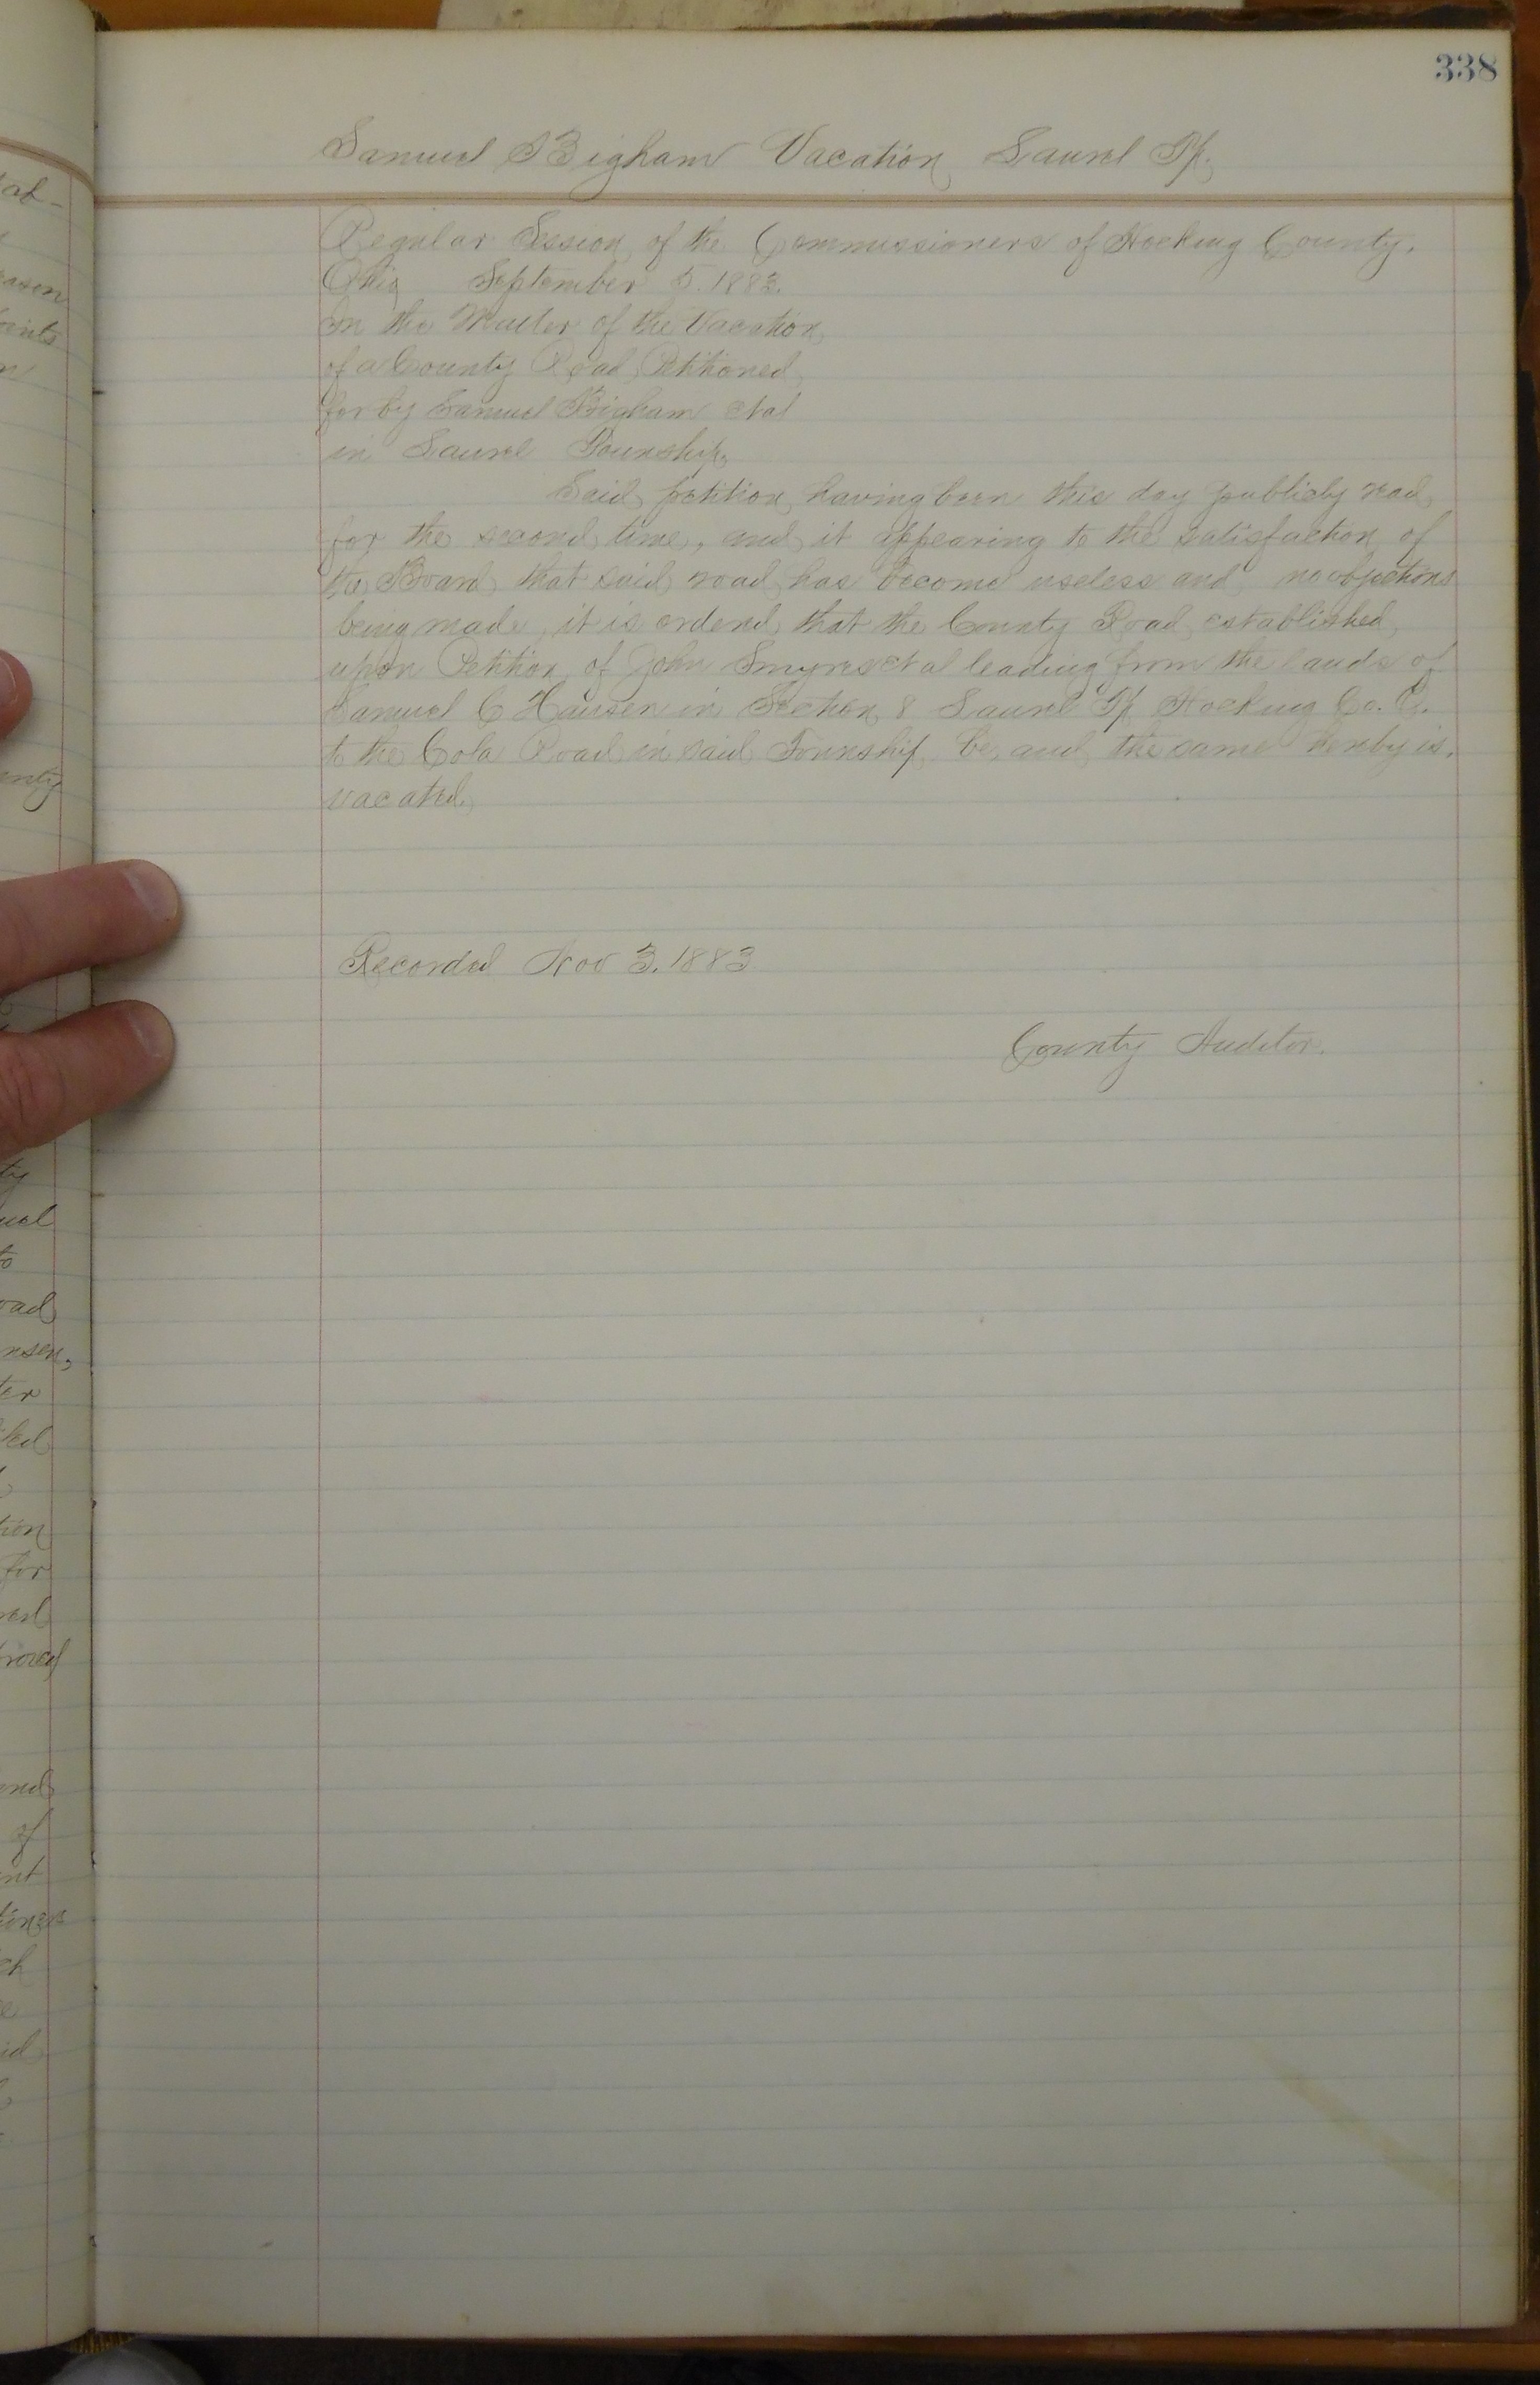 338
Samuel Bigham Vacation Laurel Tp.
Regular Session of the Commissioners of Hocking County,
Ohio September 5. 1883.
In the Matter of the Vacation
of a County Road Petitioned
for by Samuel Bigham et al
in Laurel Township.
Said petition having been this day publicly read
for the second time, and it appearing to the satisfaction of
the Board that said road has become useless and no objections
being made, it is ordered that the County Road established
upon Petition of John Smyres et al leading from the lands of
Samuel C Hansen in Section 8 Laurel Tp Hocking Co. O.
to the Cola Road in said Township be, and the same hereby is,
vacated.
Recorded Nov 3. 1883
County Auditor.